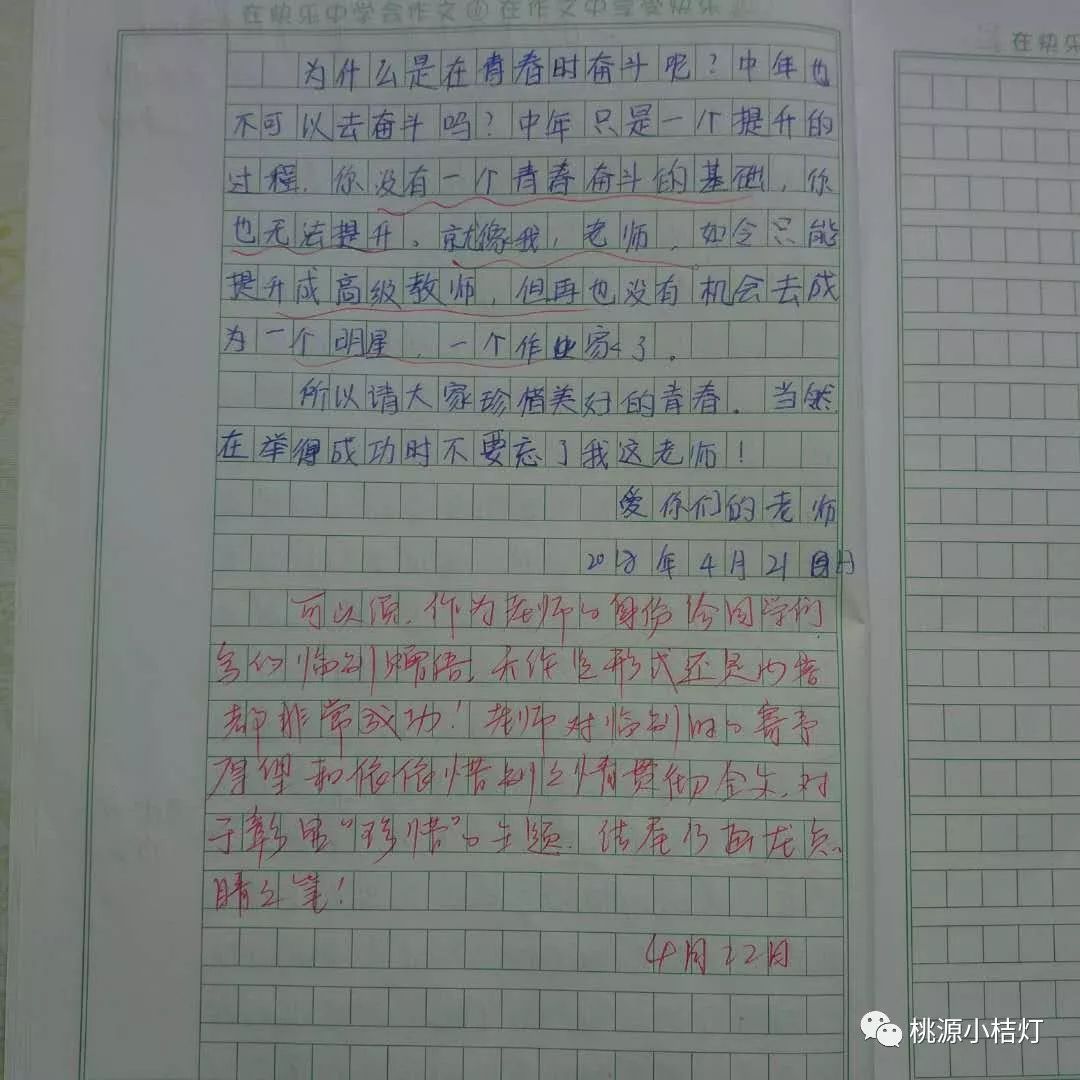 在快乐中学会作文 在作文中享受快乐
在快乐
为什么是在青春时奋斗呢？中年也
不可以去奋斗吗？中年只是一个提升的
过程，你没有一个青春奋斗的基础，你
也无法提升。就像我，老师，如今只能
提升成高级教师，但再也没有机会去成
为一个明星，一个作家了。
所以请大家珍惜美好的青春。当然
在举得成功时不要忘了我这老师！
爱你们的老师
2018年4月21日
可以源，作为老师的身份给同学们
写的临别赠语，无论是形式还是内容
都非常成功！老师对临别时的寄予
厚望和依依惜别之情贯彻全文，对
于彰显“珍惜”的主题，结尾乃画龙点
睛之笔！
4月22日
桃源小桔灯